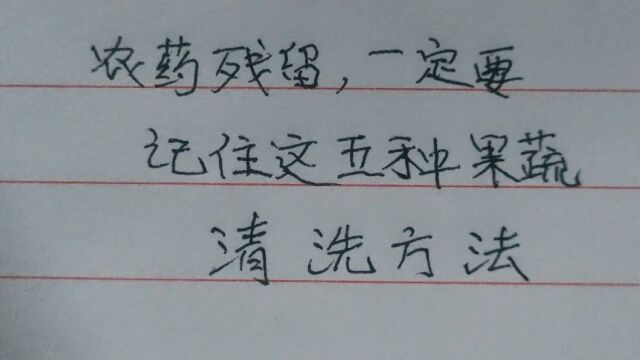 农药残留,一定要
记住这五种果蔬
清洗方法